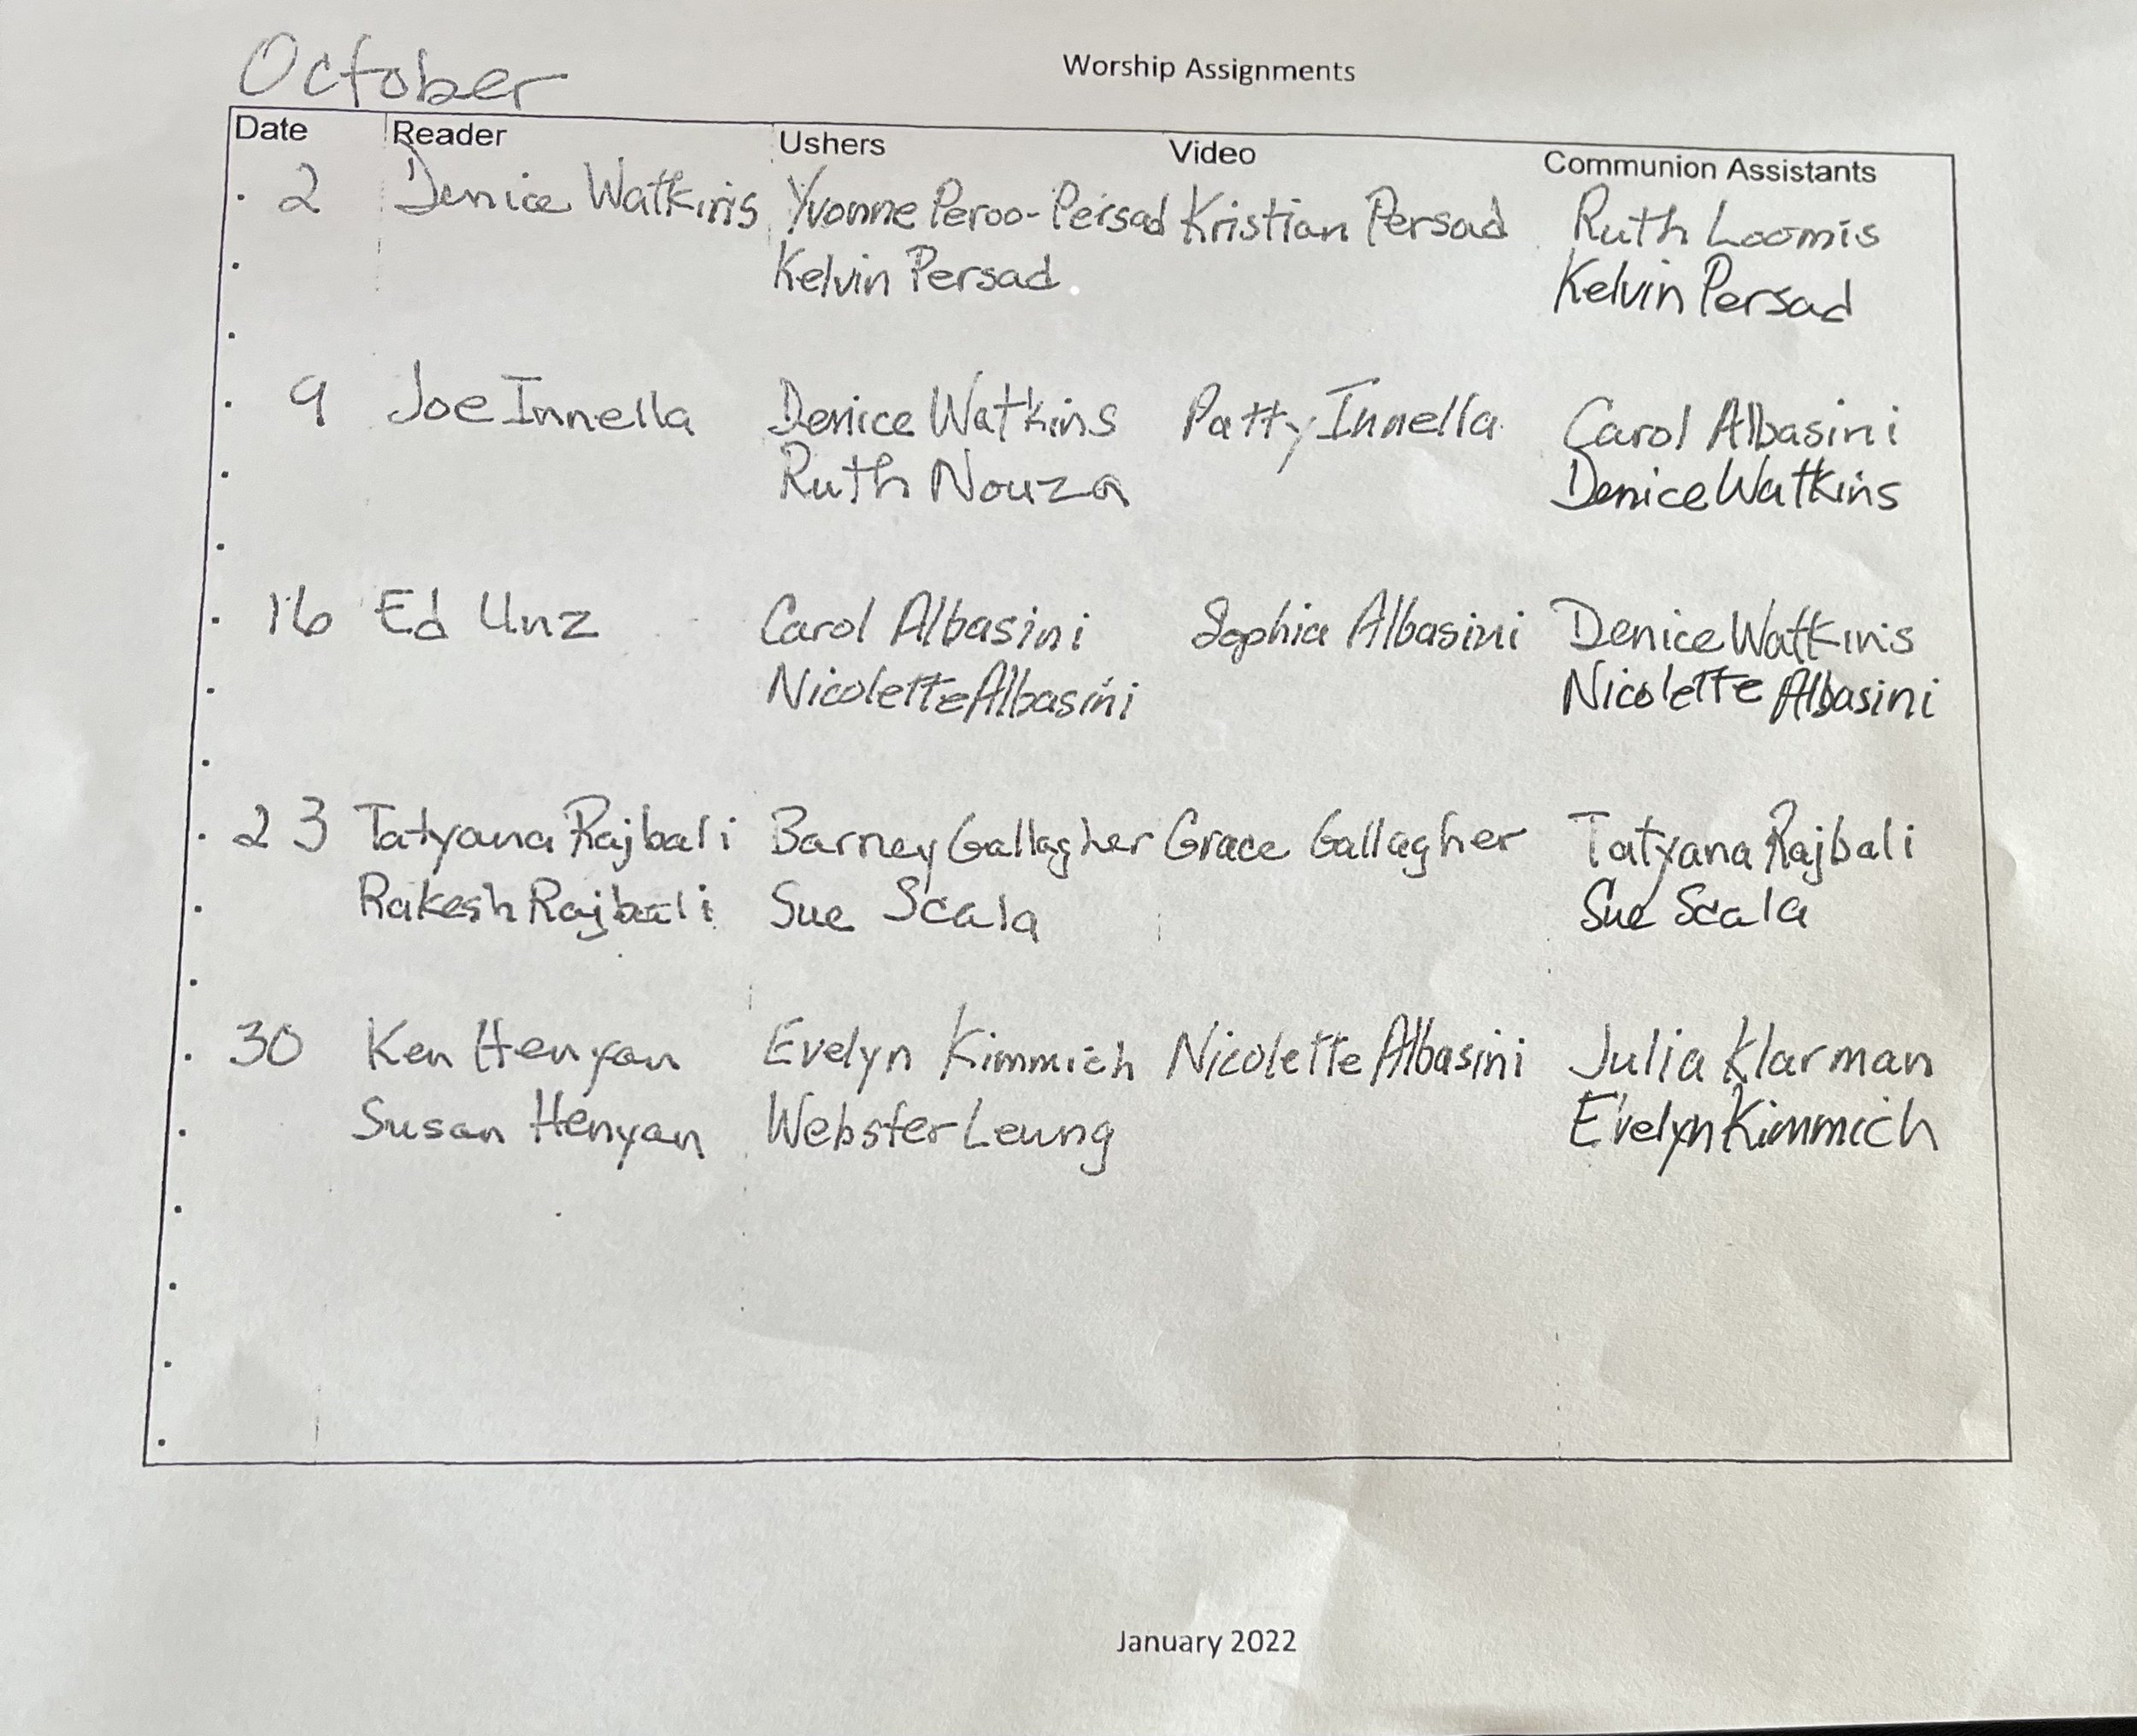 October
Worship Assignments
Date Reader Ushers Video Communion Assistants
2 Denice Watkins Yvonne Peroo-Persad Kristian Persad Ruth Loomis
Kelvin Persad Kelvin Persad
9 Joe Innella Denice Watkins Patty Innella Carol Albasini
Ruth Nouza Denice Watkins
16 Ed Unz Carol Albasini Sophia Albasini Denice Watkins
Nicolette Albasini Nicolette Albasini
23 Tatyana Rajbali Barney Gallagher Grace Gallagher Tatyana Rajbali
Rakesh Rajbali Sue Scala Sue Scala
30 Ken Henyan Evelyn Kimmich Nicolette Albasini Julia Klarman
Susan Henyan Webster Leung Evelyn Kimmich
January 2022